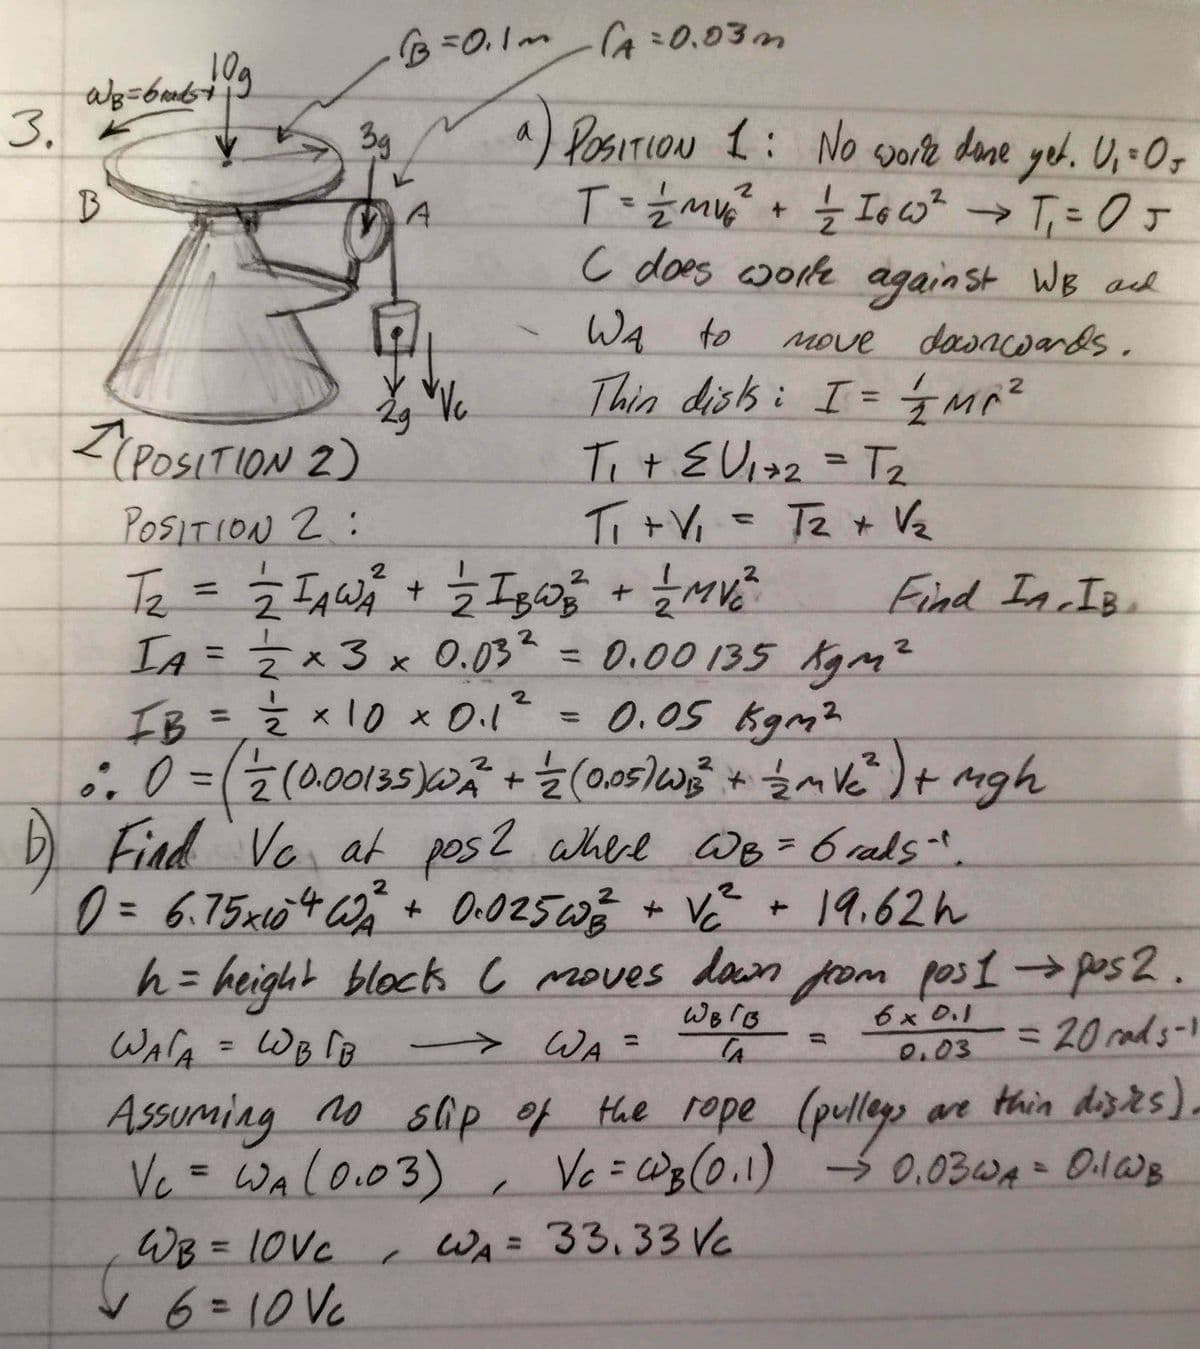 r_B = 0.1m r_A = 0.03m
ω_B = 6 rads⁻¹ 10g
3.
3g
B
A
2g V_C
↗(POSITION 2)
a) POSITION 1: No work done yet. U₁ = 0J
T = ½mv_G² + ½I_Gω² → T₁ = 0 J
C does work against W_B and
W_A to move downwards.
Thin disk: I = ½mr²
T₁ + ΣU₁→₂ = T₂
T₁ + V₁ = T₂ + V₂
POSITION 2:
T₂ = ½I_Aω_A² + ½I_Bω_B² + ½mv_C² Find I_A, I_B.
I_A = ½ × 3 × 0.03² = 0.00135 Kgm²
I_B = ½ × 10 × 0.1² = 0.05 Kgm²
∴ 0 = (½(0.00135)ω_A² + ½(0.05)ω_B² + ½mV_C²) + mgh
b) Find V_C at pos 2 where ω_B = 6 rads⁻¹.
0 = 6.75×10⁻⁴ω_A² + 0.025ω_B² + V_C² + 19.62h
h = height block C moves down from pos1 → pos2.
ω_A r_A = ω_B r_B → ω_A = ω_B r_B / r_A = 6 × 0.1 / 0.03 = 20 rads⁻¹
Assuming no slip of the rope (pulleys are thin disks).
V_C = ω_A(0.03), V_C = ω_B(0.1) → 0.03ω_A = 0.1ω_B
ω_B = 10V_C, ω_A = 33.33V_C
↓ 6 = 10V_C